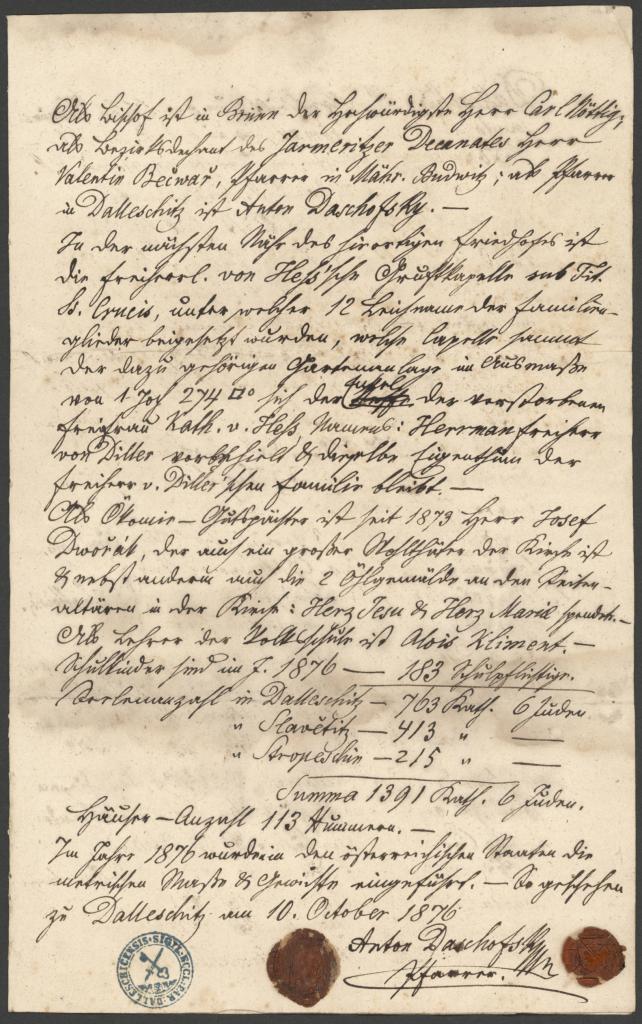 Als Bischof ist in Brünn der Hochwürdigste Herr Carl Nöttig;
als Bezirksdechant des Jarmeritzer Decanates Herr
Valentin Bečwař, Pfarrer in Mähr. Budwitz; als Pfarrer
in Dalleschitz ist Anton Daschofsky. —
In der nächsten Nähe des hierortigen Friedhofes ist
die freiherrl. von Hess'sche Gruftkapelle sub Tit.
S. Crucis, unter welcher 12 Leichname der Familien-
glieder beigesetzt wurden, welche Capelle sammt
der dazu gehörigen Gartenanlage im Ausmaße
von 1 Joch 274 □° sich der der verstorbenen
Freifrau Kath. v. Heß, Namens: Herrman Freiherr
von Diller vorbehielt & dieselbe Eigenthum der
Freiherr v. Diller'schen Familie bleibt. —
Als Ökomie-Gutspächter ist seit 1873 Herr Josef
Dwořák, der auch ein großer Wohlthäter der Kirche ist
& nebst anderm auch die 2 Öhlgemälde an den Seiten-
altären in der Kirche: Herz Jesu & Herz Mariae spendete. —
Als Lehrer der Volksschule ist Alois Kliment. —
Schulkinder sind im J. 1876 — 183 Schulpflichtige.
Seelenanzahl in Dalleschitz — 763 Kath. 6 Juden
" Slavětitz — 413 " —
" Stropeschin — 215 " —
Summa 1391 Kath. 6 Juden.
Häuser-Anzahl 113 Nummern. —
Im Jahre 1876 wurden in den österreichischen Staaten die
metrischen Maße & Gewichte eingeführt. — So geschehen
zu Dalleschitz am 10. October 1876
Anton Daschofsky
Pfarrer.
SIGIL. ECCL. PAR. DALLESCHICENSIS